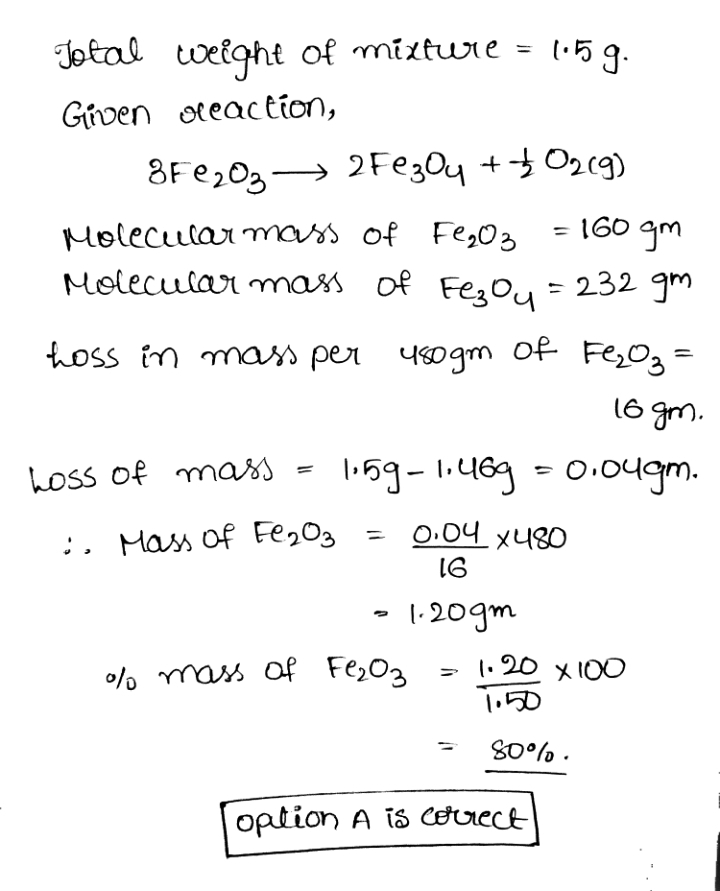 Total weight of mixture = 1.5 g.
Given reaction,
3Fe₂O₃ ⟶ 2Fe₃O₄ + ½ O₂(g)
Molecular mass of Fe₂O₃ = 160 gm
Molecular mass of Fe₃O₄ = 232 gm
Loss in mass per 480gm of Fe₂O₃ =
16 gm.
Loss of mass = 1.5g - 1.46g = 0.04gm.
∴ Mass of Fe₂O₃ = 0.04/16 x480
= 1.20gm
% mass of Fe₂O₃ = 1.20/1.50 x100
= 80%.
option A is correct